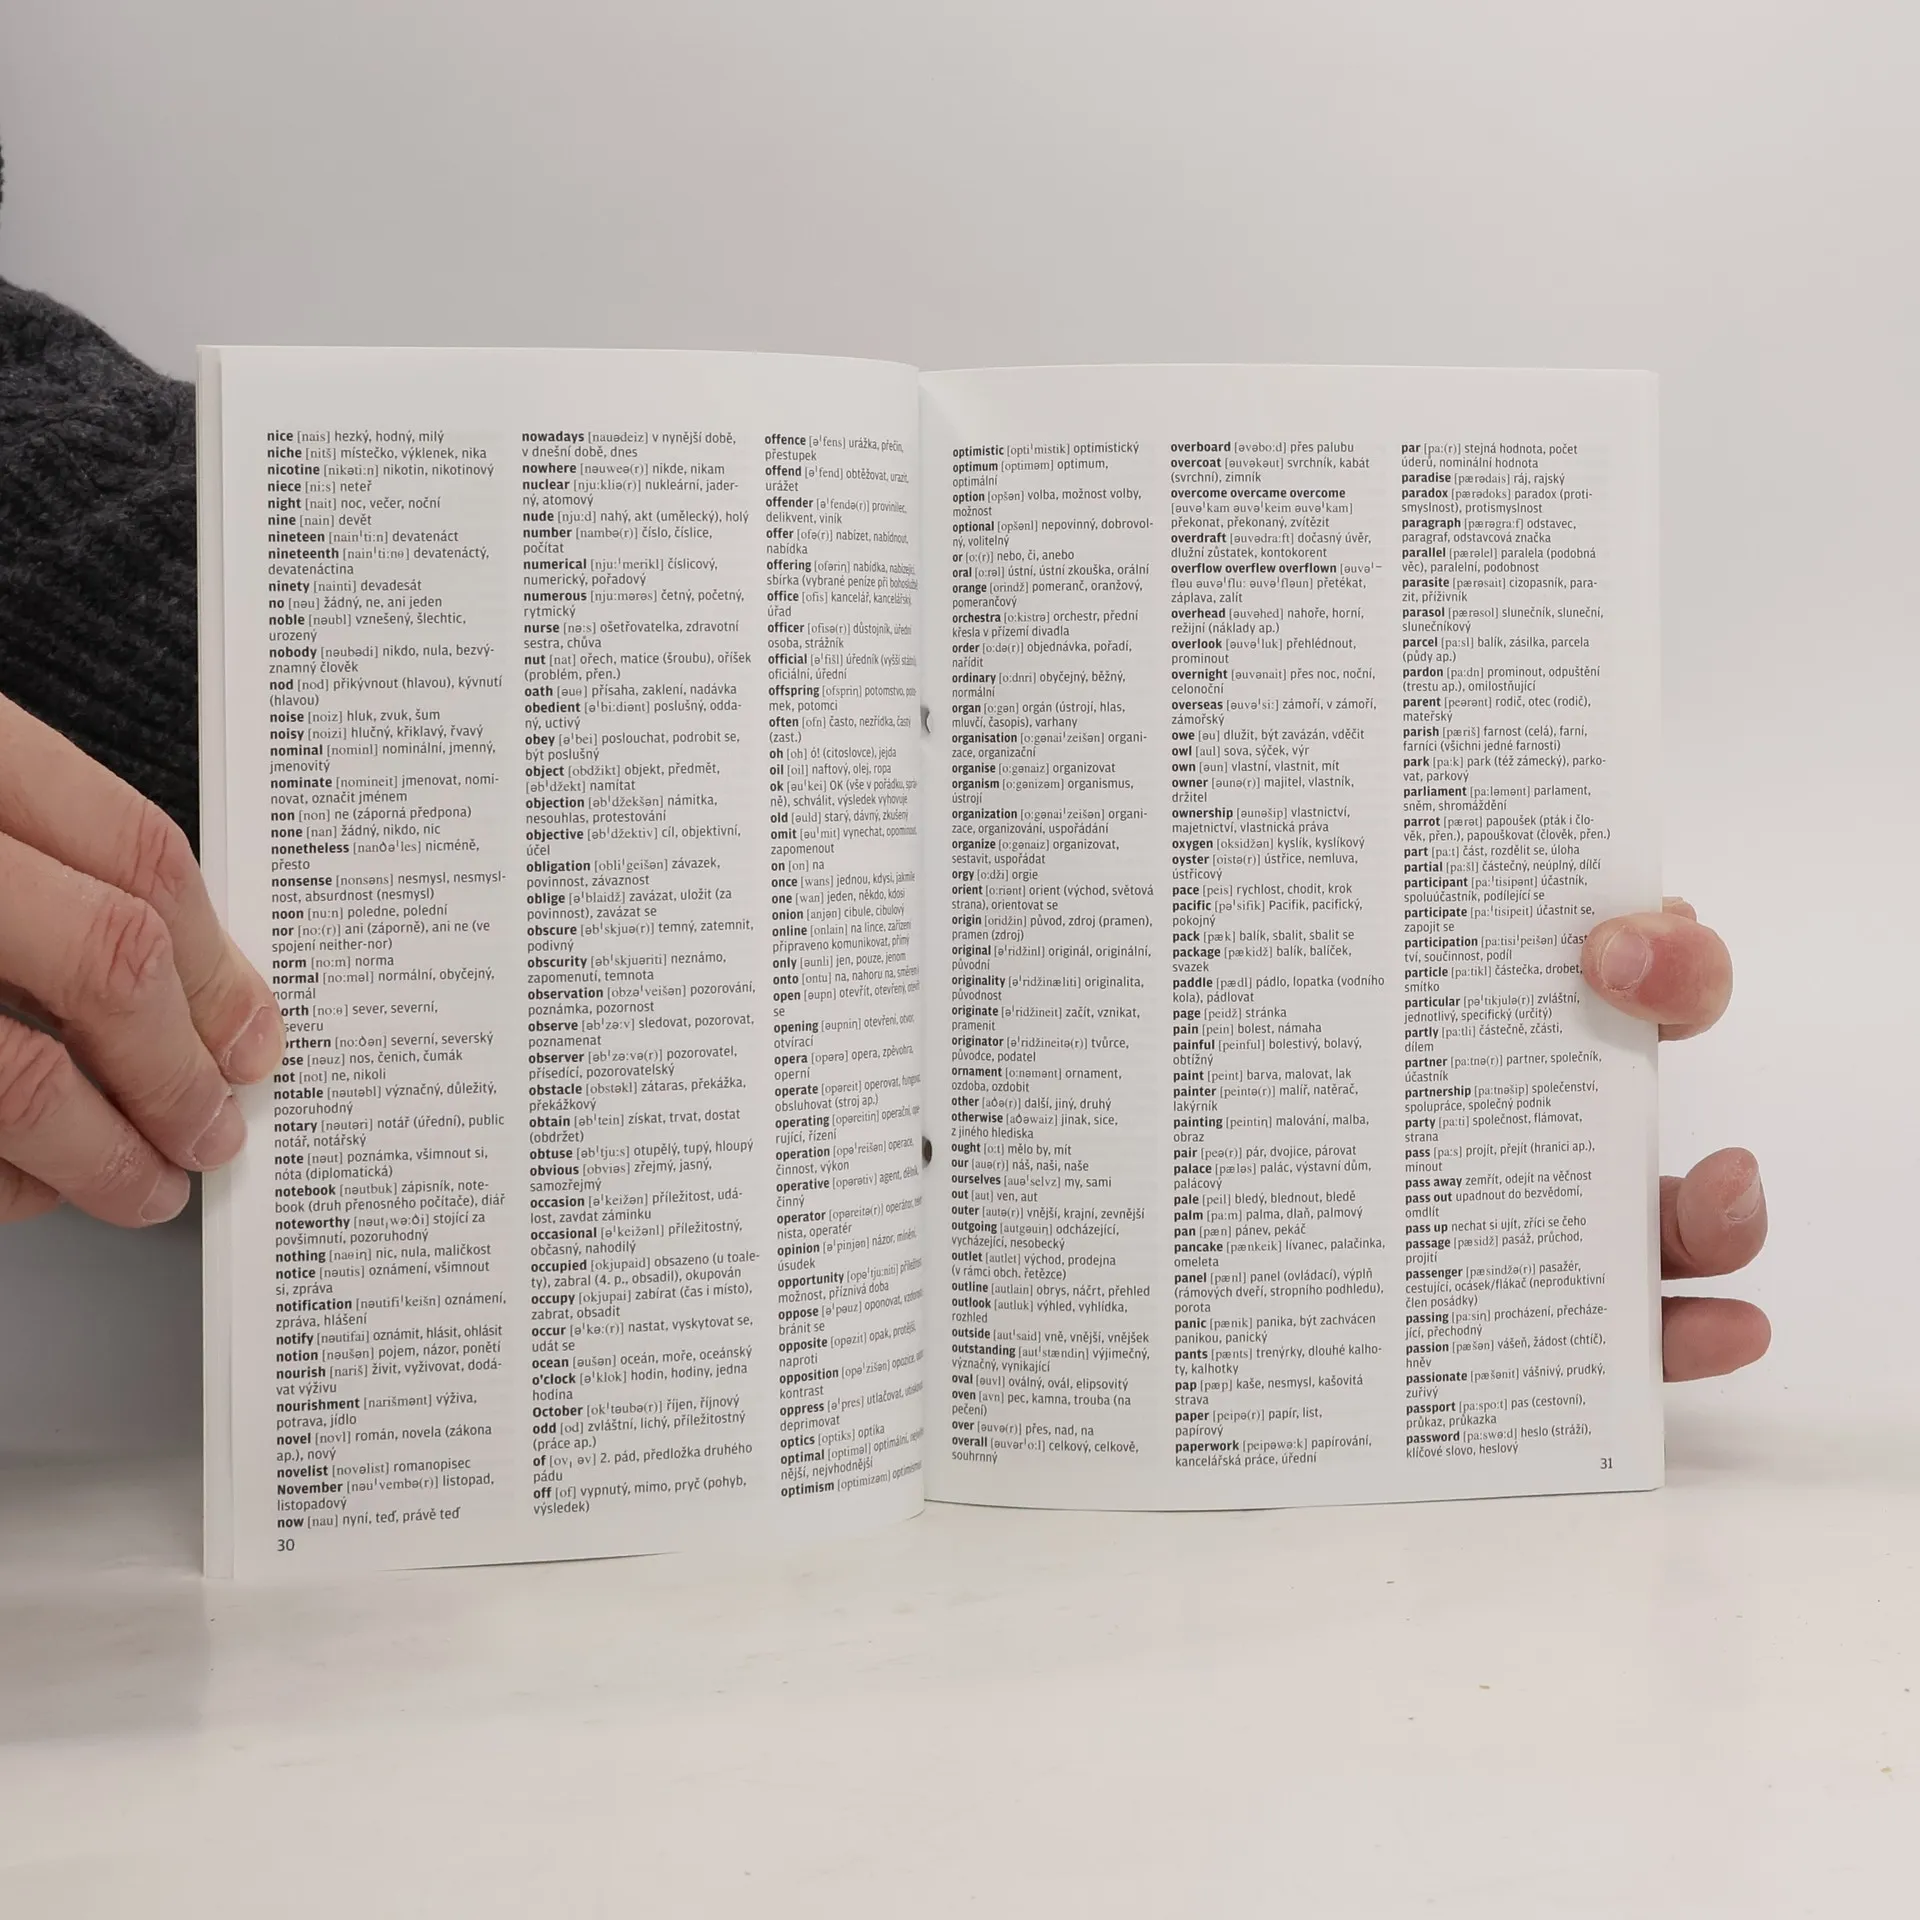 nice [nais] hezký, hodný, milý
niche [nitš] místečko, výklenek, nika
nicotine [nikəti:n] nikotin, nikotinový
niece [ni:s] neteř
night [nait] noc, večer, noční
nine [nain] devět
nineteen [nainˈti:n] devatenáct
nineteenth [nainˈti:nθ] devatenáctý,
devatenáctina
ninety [nainti] devadesát
no [nəu] žádný, ne, ani jeden
noble [nəubl] vznešený, šlechtic,
urozený
nobody [nəubədi] nikdo, nula, bezvý-
znamný člověk
nod [nod] přikývnout (hlavou), kývnutí
(hlavou)
noise [noiz] hluk, zvuk, šum
noisy [noizi] hlučný, křiklavý, řvavý
nominal [nominl] nominální, jmenný,
jmenovitý
nominate [nomineit] jmenovat, nomi-
novat, označit jménem
non [non] ne (záporná předpona)
none [nan] žádný, nikdo, nic
nonetheless [nanðəˈles] nicméně,
přesto
nonsense [nonsəns] nesmysl, nesmysl-
nost, absurdnost (nesmysl)
noon [nu:n] poledne, polední
nor [no:(r)] ani (záporně), ani ne (ve
spojení neither-nor)
norm [no:m] norma
normal [no:məl] normální, obyčejný,
normál
orth [no:θ] sever, severní,
severu
orthern [no:ðən] severní, severský
ose [nəuz] nos, čenich, čumák
not [not] ne, nikoli
notable [nəutəbl] význačný, důležitý,
pozoruhodný
notary [nəutəri] notář (úřední), public
notář, notářský
note [nəut] poznámka, všimnout si,
nóta (diplomatická)
notebook [nəutbuk] zápisník, note-
book (druh přenosného počítače), diář
noteworthy [nəutˌwə:ði] stojící za
povšimnutí, pozoruhodný
nothing [naθin] nic, nula, maličkost
notice [nəutis] oznámení, všimnout
si, zpráva
notification [nəutifiˈkeišn] oznámení,
zpráva, hlášení
notify [nəutifai] oznámit, hlásit, ohlásit
notion [nəušən] pojem, názor, ponětí
nourish [nariš] živit, vyživovat, dodá-
vat výživu
nourishment [narišmənt] výživa,
potrava, jídlo
novel [novl] román, novela (zákona
ap.), nový
novelist [novəlist] romanopisec
November [nəuˈvembə(r)] listopad,
listopadový
now [nau] nyní, teď, právě teď
30
nowadays [nauədeiz] v nynější době,
v dnešní době, dnes
nowhere [nəuweə(r)] nikde, nikam
nuclear [nju:kliə(r)] nukleární, jader-
ný, atomový
nude [nju:d] nahý, akt (umělecký), holý
number [nambə(r)] číslo, číslice,
počítat
numerical [nju:ˈmerikl] číslicový,
numerický, pořadový
numerous [nju:mərəs] četný, početný,
rytmický
nurse [nə:s] ošetřovatelka, zdravotní
sestra, chůva
nut [nat] ořech, matice (šroubu), oříšek
(problém, přen.)
oath [əuθ] přísaha, zaklení, nadávka
obedient [əˈbi:diənt] poslušný, odda-
ný, uctivý
obey [əˈbei] poslouchat, podrobit se,
být poslušný
object [obdžikt] objekt, předmět,
[əbˈdžekt] namítat
objection [əbˈdžekšən] námitka,
nesouhlas, protestování
objective [əbˈdžektiv] cíl, objektivní,
účel
obligation [obliˈgeišən] závazek,
povinnost, závaznost
oblige [əˈblaidž] zavázat, uložit (za
povinnost), zavázat se
obscure [əbˈskjuə(r)] temný, zatemnit,
podivný
obscurity [əbˈskjuəriti] neznámo,
zapomenutí, temnota
observation [obzəˈveišən] pozorování,
poznámka, pozornost
observe [əbˈzə:v] sledovat, pozorovat,
poznamenat
observer [əbˈzə:və(r)] pozorovatel,
přísedící, pozorovatelský
obstacle [obstəkl] zátaras, překážka,
překážkový
obtain [əbˈtein] získat, trvat, dostat
(obdržet)
obtuse [əbˈtju:s] otupělý, tupý, hloupý
obvious [obviəs] zřejmý, jasný,
samozřejmý
occasion [əˈkeižən] příležitost, udá-
lost, zavdat záminku
occasional [əˈkeižənl] příležitostný,
občasný, nahodilý
occupied [okjupaid] obsazeno (u toale-
ty), zabral (4. p., obsadil), okupován
occupy [okjupai] zabírat (čas i místo),
zabrat, obsadit
occur [əˈkə:(r)] nastat, vyskytovat se,
udát se
ocean [əušən] oceán, moře, oceánský
o'clock [əˈklok] hodin, hodiny, jedna
hodina
October [okˈtəubə(r)] říjen, říjnový
odd [od] zvláštní, lichý, příležitostný
(práce ap.)
of [ov, əv] 2. pád, předložka druhého
pádu
off [of] vypnutý, mimo, pryč (pohyb,
výsledek)
offence [əˈfens] urážka, přečin,
přestupek
offend [əˈfend] obtěžovat, urazit,
urážet
offender [əˈfendə(r)] provinilec,
delikvent, viník
offer [ofə(r)] nabízet, nabídnout,
nabídka
offering [ofərin] nabídka, nabízející,
sbírka (vybrané peníze při bohoslužbě
office [ofis] kancelář, kancelářský,
úřad
officer [ofisə(r)] důstojník, úřední
osoba, strážník
official [əˈfišl] úředník (vyšší státní),
oficiální, úřední
offspring [ofsprin] potomstvo, poto-
mek, potomci
often [ofn] často, nezřídka, častý
(zast.)
oh [oh] ó! (citoslovce), jejda
oil [oil] naftový, olej, ropa
ok [əuˈkei] OK (vše v pořádku, správ-
ně), schválit, výsledek vyhovuje
old [əuld] starý, dávný, zkušený
omit [əuˈmit] vynechat, opominout,
zapomenout
on [on] na
once [wans] jednou, kdysi, jakmile
one [wan] jeden, někdo, kdosi
onion [anjən] cibule, cibulový
online [onlain] na lince, zařízení
připraveno komunikovat, přímý
only [əunli] jen, pouze, jenom
onto [ontu] na, nahoru na, směrem
open [əupn] otevřít, otevřený, otevřít
se
opening [əupnin] otevření, otvor,
otvírací
opera [opərə] opera, zpěvohra,
operní
operate [opəreit] operovat, fungovat,
obsluhovat (stroj ap.)
operating [opəreitin] operační, ope-
rující, řízení
operation [opəˈreišən] operace,
činnost, výkon
operative [opərətiv] agent, dělník,
činný
operator [opəreitə(r)] operátor, tech-
nista, operatér
opinion [əˈpinjən] názor, mínění,
úsudek
opportunity [opəˈtju:niti] příležitost
možnost, příznivá doba
oppose [əˈpəuz] oponovat, vzdorovat
bránit se
opposite [opəzit] opak, protější,
naproti
opposition [opəˈzišən] opozice,
kontrast
oppress [əˈpres] utlačovat, utiskovat
deprimovat
optics [optiks] optika
optimal [optiməl] optimální, nejvhod-
nější, nejvhodnější
optimism [optimizəm] optimismus
optimistic [optiˈmistik] optimistický
optimum [optiməm] optimum,
optimální
option [opšən] volba, možnost volby,
možnost
optional [opšənl] nepovinný, dobrovol-
ný, volitelný
or [o:(r)] nebo, či, anebo
oral [o:rəl] ústní, ústní zkouška, orální
orange [orindž] pomeranč, oranžový,
pomerančový
orchestra [o:kistrə] orchestr, přední
křesla v přízemí divadla
order [o:də(r)] objednávka, pořadí,
nařídit
ordinary [o:dnri] obyčejný, běžný,
normální
organ [o:gən] orgán (ústrojí, hlas,
mluvčí, časopis), varhany
organisation [o:gənaiˈzeišən] organi-
zace, organizační
organise [o:gənaiz] organizovat
organism [o:gənizəm] organismus,
ústrojí
organization [o:gənaiˈzeišən] organi-
zace, organizování, uspořádání
organize [o:gənaiz] organizovat,
sestavit, uspořádat
orgy [o:dži] orgie
orient [o:riənt] orient (východ, světová
strana), orientovat se
origin [oridžin] původ, zdroj (pramen),
pramen (zdroj)
original [əˈridžinl] originál, originální,
původní
originality [əˈridžinæliti] originalita,
původnost
originate [əˈridžineit] začít, vznikat,
pramenit
originator [əˈridžineitə(r)] tvůrce,
původce, podatel
ornament [o:nəmənt] ornament,
ozdoba, ozdobit
other [aðə(r)] další, jiný, druhý
otherwise [aðəwaiz] jinak, sice,
z jiného hlediska
ought [o:t] mělo by, mít
our [auə(r)] náš, naši, naše
ourselves [auəˈselvz] my, sami
out [aut] ven, aut
outer [autə(r)] vnější, krajní, zevnější
outgoing [autgəuin] odcházející,
vycházející, nesobecký
outlet [autlet] východ, prodejna
(v rámci obch. řetězce)
outline [autlain] obrys, náčrt, přehled
outlook [autluk] výhled, vyhlídka,
rozhled
outside [autˈsaid] vně, vnější, vnějšek
outstanding [autˈstændin] výjimečný,
význačný, vynikající
oval [əuvl] oválný, ovál, elipsovitý
oven [avn] pec, kamna, trouba (na
pečení)
over [əuvə(r)] přes, nad, na
overall [əuvərˈo:l] celkový, celkově,
souhrnný
overboard [əvəbo:d] přes palubu
overcoat [əuvəkəut] svrchník, kabát
(svrchní), zimník
overcome overcame overcome
[əuvəˈkam əuvəˈkeim əuvəˈkam]
překonat, překonaný, zvítězit
overdraft [əuvədra:ft] dočasný úvěr,
dlužní zůstatek, kontokorent
overflow overflew overflown [əuvəˈ–
fləu əuvəˈflu: əuvəˈfləun] přetékat,
záplava, zalít
overhead [əuvəhed] nahoře, horní,
režijní (náklady ap.)
overlook [əuvəˈluk] přehlédnout,
prominout
overnight [əuvənait] přes noc, noční,
celonoční
overseas [əuvəˈsi:] zámoří, v zámoří,
zámořský
owe [əu] dlužit, být zavázán, vděčit
owl [aul] sova, sýček, výr
own [əun] vlastní, vlastnit, mít
owner [əunə(r)] majitel, vlastník,
držitel
ownership [əunəšip] vlastnictví,
majetnictví, vlastnická práva
oxygen [oksidžən] kyslík, kyslíkový
oyster [oistə(r)] ústřice, nemluva,
ústřicový
pace [peis] rychlost, chodit, krok
pacific [pəˈsifik] Pacifik, pacifický,
pokojný
pack [pæk] balík, sbalit, sbalit se
package [pækidž] balík, balíček,
svazek
paddle [pædl] pádlo, lopatka (vodního
kola), pádlovat
page [peidž] stránka
pain [pein] bolest, námaha
painful [peinful] bolestivý, bolavý,
obtížný
paint [peint] barva, malovat, lak
painter [peintə(r)] malíř, natěrač,
lakýrník
painting [peintin] malování, malba,
obraz
pair [peə(r)] pár, dvojice, párovat
palace [pæləs] palác, výstavní dům,
palácový
pale [peil] bledý, blednout, bledě
palm [pa:m] palma, dlaň, palmový
pan [pæn] pánev, pekáč
pancake [pænkeik] lívanec, palačinka,
omeleta
panel [pænl] panel (ovládací), výplň
(rámových dveří, stropního podhledu),
porota
panic [pænik] panika, být zachvácen
panikou, panický
pants [pænts] trenýrky, dlouhé kalho-
ty, kalhotky
pap [pæp] kaše, nesmysl, kašovitá
strava
paper [peipə(r)] papír, list,
papírový
paperwork [peipəwə:k] papírování,
kancelářská práce, úřední
par [pa:(r)] stejná hodnota, počet
úderů, nominální hodnota
paradise [pærədais] ráj, rajský
paradox [pærədoks] paradox (proti-
smyslnost), protismyslnost
paragraph [pærəgra:f] odstavec,
paragraf, odstavcová značka
parallel [pærəlel] paralela (podobná
věc), paralelní, podobnost
parasite [pærəsait] cizopasník, para-
zit, příživník
parasol [pærəsol] slunečník, sluneční,
slunečníkový
parcel [pa:sl] balík, zásilka, parcela
(půdy ap.)
pardon [pa:dn] prominout, odpuštění
(trestu ap.), omilostňující
parent [peərənt] rodič, otec (rodič),
mateřský
parish [pæriš] farnost (celá), farní,
farníci (všichni jedné farnosti)
park [pa:k] park (též zámecký), parko-
vat, parkový
parliament [pa:ləmənt] parlament,
sněm, shromáždění
parrot [pærət] papoušek (pták i člo-
věk, přen.), papouškovat (člověk, přen.)
part [pa:t] část, rozdělit se, úloha
partial [pa:šl] částečný, neúplný, dílčí
participant [pa:ˈtisipənt] účastník,
spoluúčastník, podílející se
participate [pa:ˈtisipeit] účastnit se,
zapojit se
participation [pa:tisiˈpeišən] účas
tví, součinnost, podíl
particle [pa:tikl] částečka, drobet,
smítko
particular [pəˈtikjulə(r)] zvláštní,
jednotlivý, specifický (určitý)
partly [pa:tli] částečně, zčásti,
dílem
partner [pa:tnə(r)] partner, společník,
účastník
partnership [pa:tnəšip] společenství,
spolupráce, společný podnik
party [pa:ti] společnost, flámovat,
strana
pass [pa:s] projít, přejít (hranici ap.),
minout
pass away zemřít, odejít na věčnost
pass out upadnout do bezvědomí,
omdlít
pass up nechat si ujít, zříci se čeho
passage [pæsidž] pasáž, průchod,
projití
passenger [pæsindžə(r)] pasažér,
cestující, ocásek/flákač (neproduktivní
člen posádky)
passing [pa:sin] procházení, přecháze-
jící, přechodný
passion [pæšən] vášeň, žádost (chtíč),
hněv
passionate [pæšənit] vášnivý, prudký,
zuřivý
passport [pa:spo:t] pas (cestovní),
průkaz, průkazka
password [pa:swə:d] heslo (stráží),
klíčové slovo, heslový
31